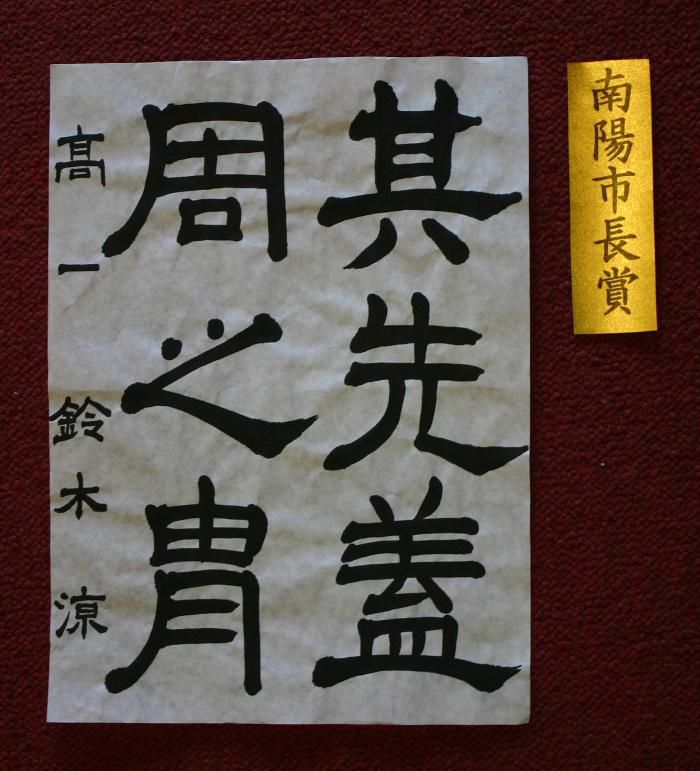 南陽市長賞
其先盖
周之胄
髙一 鈴木 涼